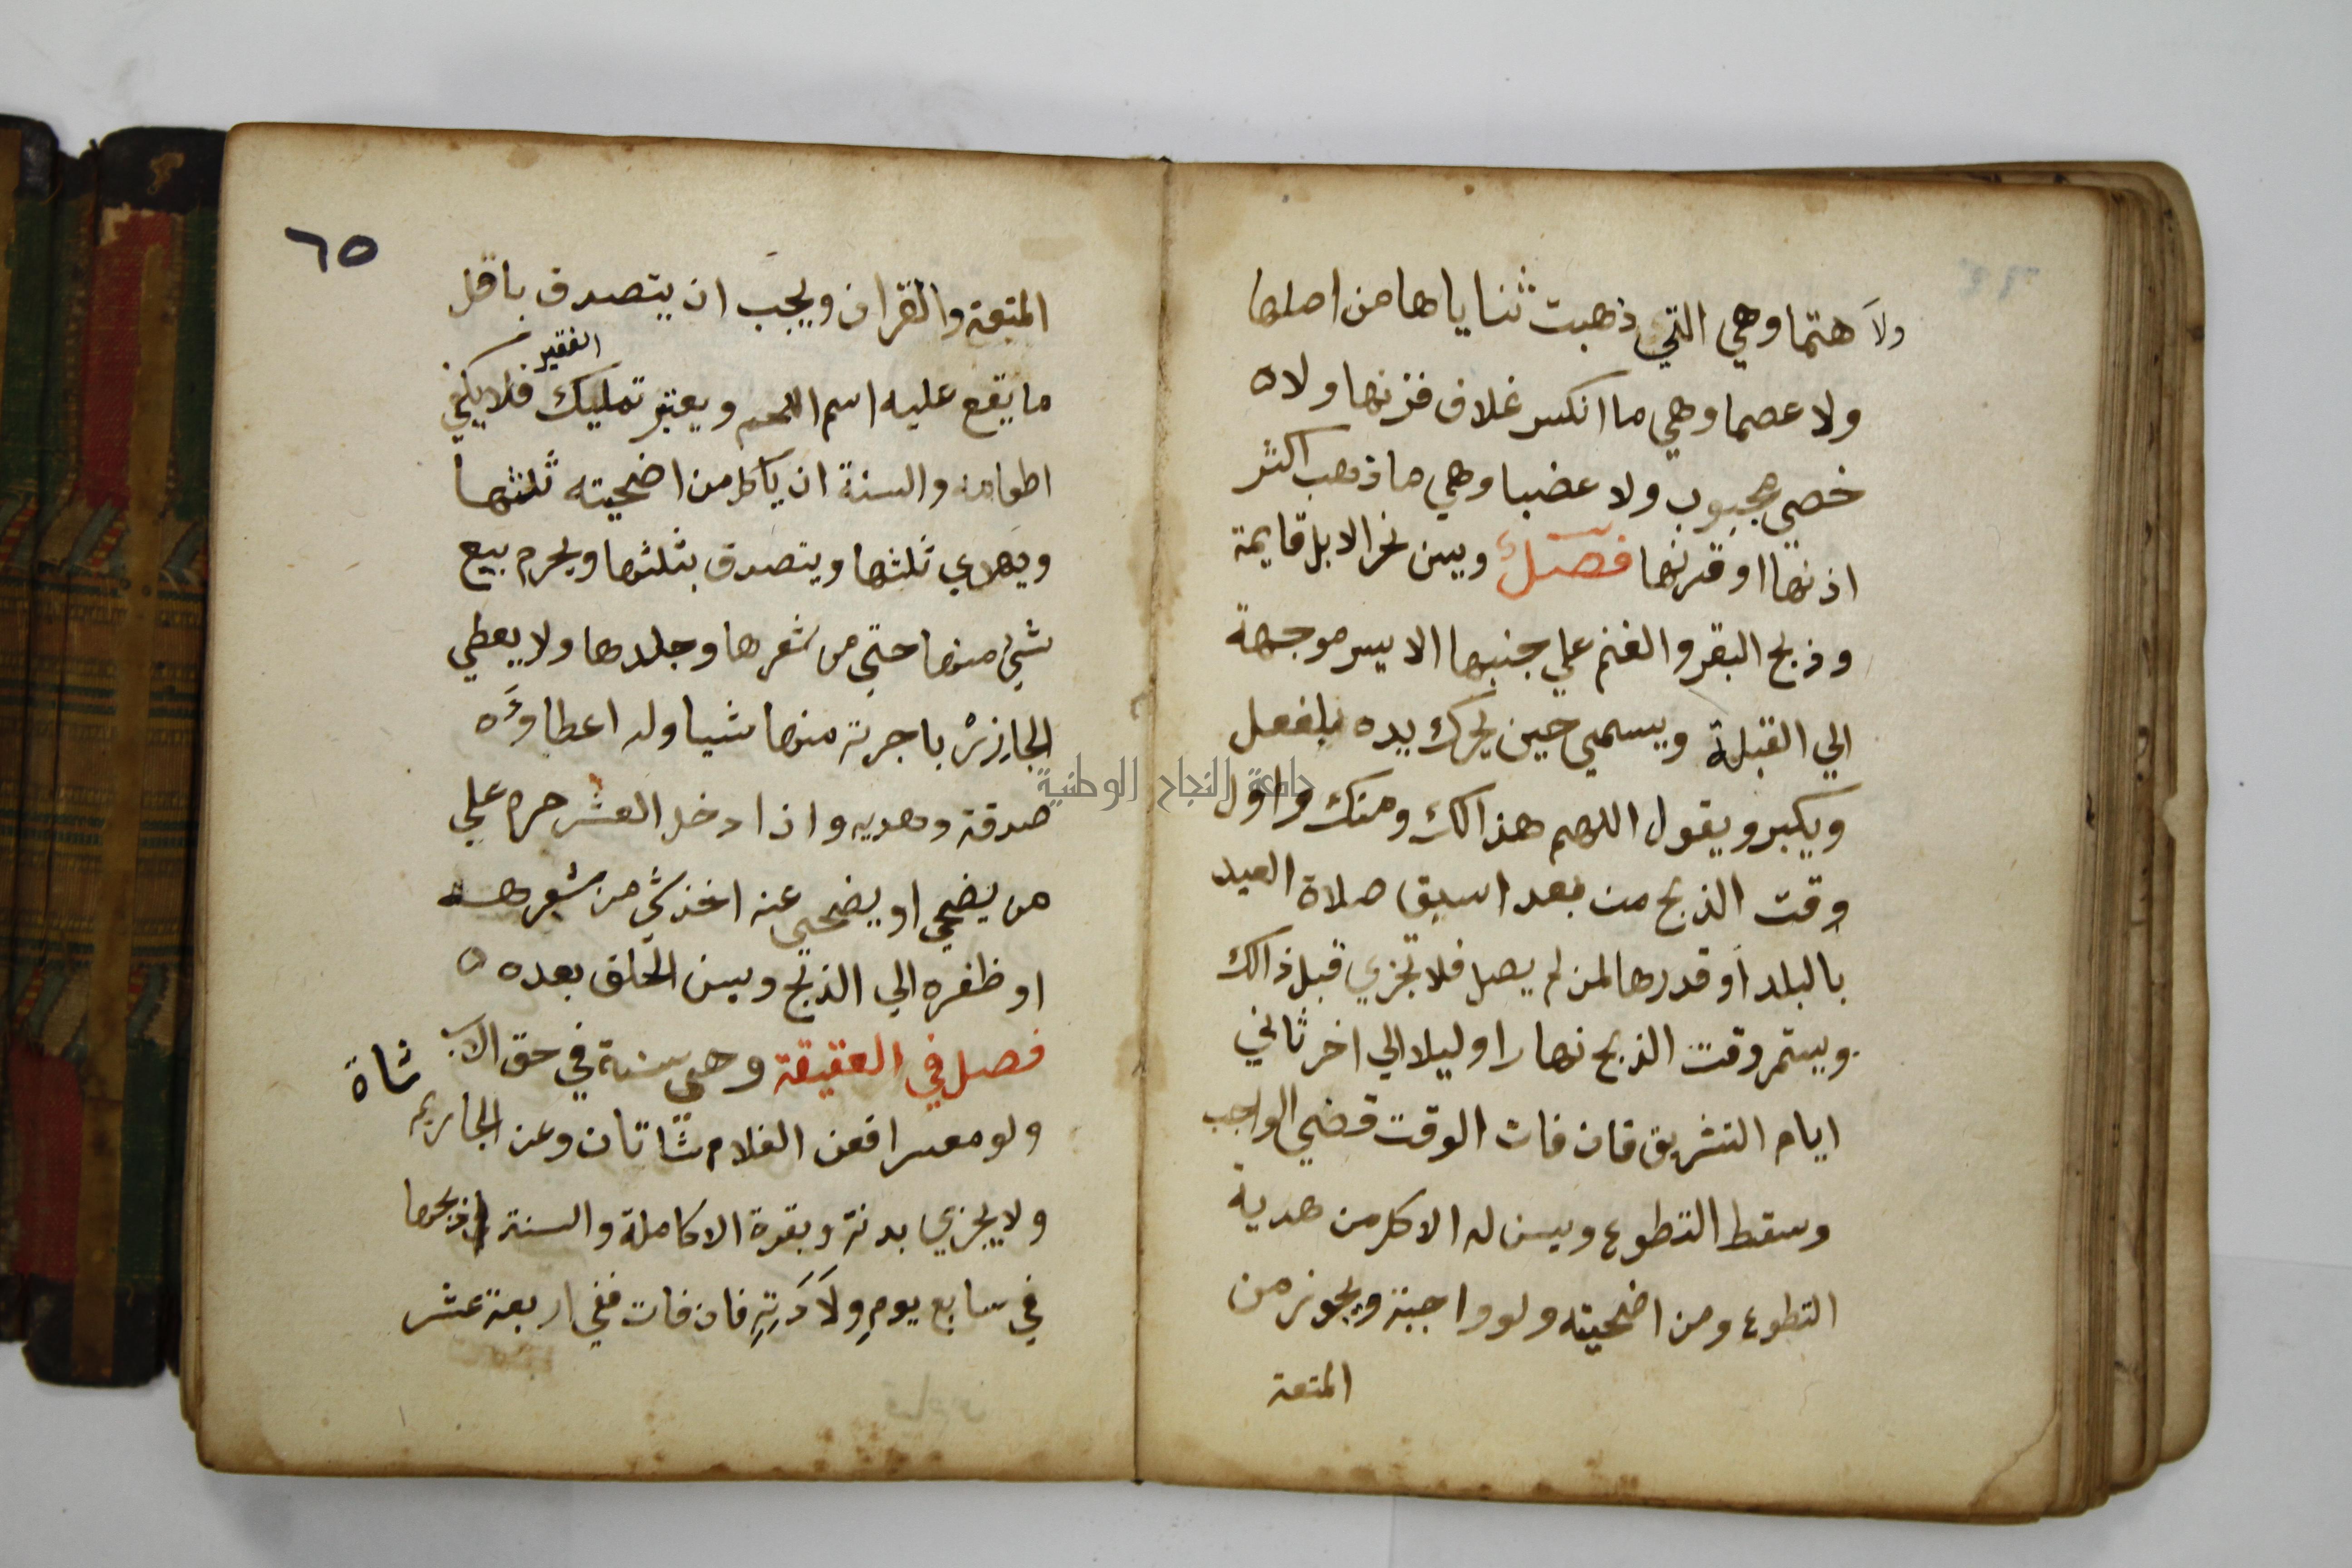 ولا هتما وهي التي ذهبت ثناياها من اصلها
ولا عصما وهي ما انكسر غلاف قرنها ولا ه
خصي مجبوب ولا عضبا وهي ما ذهب اكثر
اذنها او قرنها فصل ويسن نحر الابل قايمة
وذبح البقر والغنم علي جنبها الايسر موجهة
الي القبلة ويسمي حين يحرك يده بلفعل
ويكبر ويقول اللهم هذا لك ومنك واول
وقت الذبح من بعد اسبق صلاة العيد
بالبلد أو قدرها لمن لم يصل فلا تجزي قبل ذالك
ويستمر وقت الذبح نهارا وليلا الي اخر ثاني
ايام التشريق فان فات الوقت قضي الواجب
وسقط التطوع ويسن له الاكل من هدية
التطوع ومن اضحيته ولو واجبة ويجوز من
المتعة
٦٥
المتعة والقران ويجب ان يتصدق باقل
ما يقع عليه اسم اللحم ويعتبر تمليك الفقير فلا يكفي
اطعامه والسنة ان ياكل من اضحيته ثلثها
ويهدي ثلثها ويتصدق بثلثها ويحرم بيع
شيء منها حتي من شعرها وجلدها ولا يعطي
الجازر باجرته منها شيا وله اعطاؤه
صدقة وهديه واذا دخل العشر حرم علي
من يضحي او يضحي عنه اخذ شي من شعره
او ظفره الي الذبح ويسن الحلق بعده ه
فصل في العقيقة وهي سنة في حق الاب
ولو معسرا فعن الغلام شاتان وعن الجاريه شاة
ولا يجزي بدنة وبقرة الا كاملة والسنة ذبحها
في سابع يوم ولادته فان فات ففي اربعة عشر
جامعة النجاح الوطنية